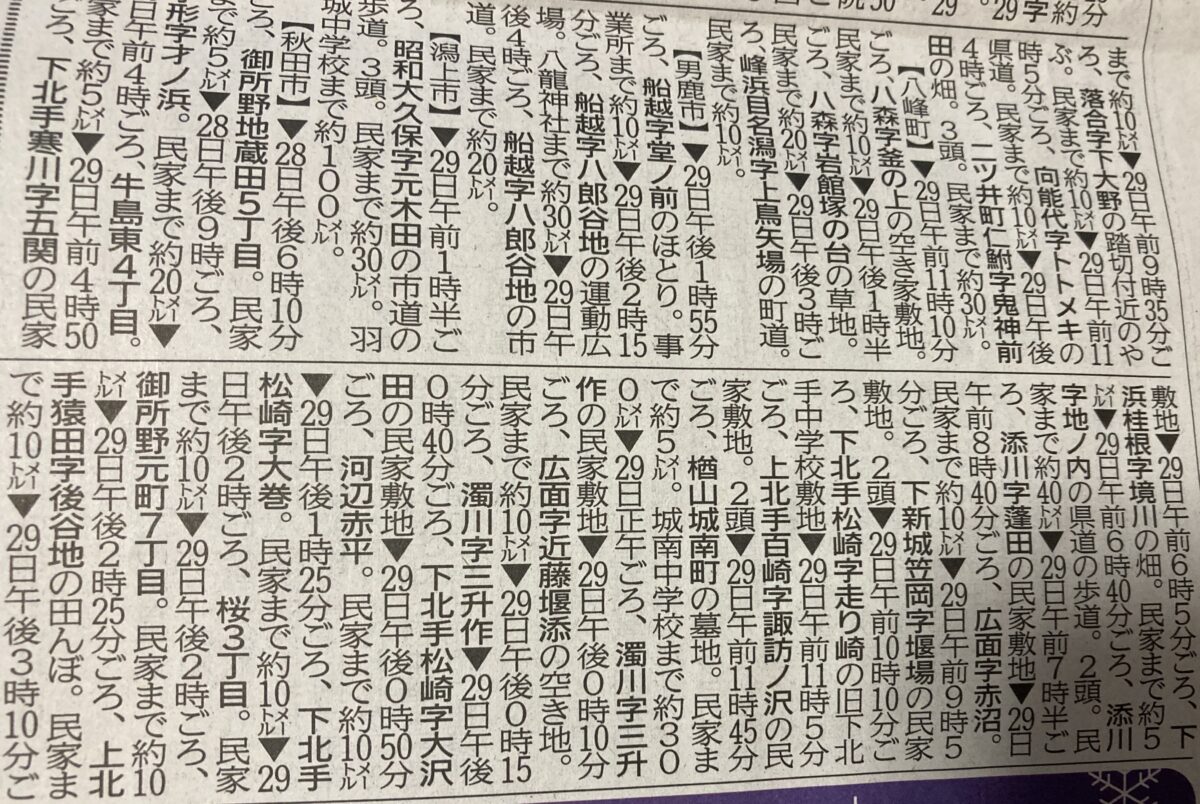 まで約10㍍▼29日午前9時35分ご
ろ、落合字下大野の踏切付近のや
ぶ。民家まで約10㍍▼29日午前11
時5分ごろ、向能代字トトメキの
県道。民家まで約10㍍▼29日午後
4時ごろ、二ツ井町仁鮒字鬼神前
田の畑。3頭。民家まで約30㍍。
【八峰町】▼29日午前11時10分
ごろ、八森字釜の上の空き家敷地。
民家まで約10㍍▼29日午後1時半
ごろ、八森字岩館塚の台の草地。
民家まで約20㍍▼29日午後3時ご
ろ、峰浜目名潟字上鳥矢場の町道。
民家まで約10㍍。
【男鹿市】▼29日午後1時55分
ごろ、船越字堂ノ前のほとり。事
業所まで約10㍍▼29日午後2時15
分ごろ、船越字八郎谷地の運動広
場。八龍神社まで約30㍍▼29日午
後4時ごろ、船越字八郎谷地の市
道。民家まで約20㍍。
【潟上市】▼29日午前1時半ご
ろ、昭和大久保字元木田の市道の
歩道。3頭。民家まで約30㍍。羽
城中学校まで約100㍍。
【秋田市】▼28日午後6時10分
ごろ、御所野地蔵田5丁目。民家
まで約5㍍▼28日午後9時ごろ、
形字才ノ浜。民家まで約20㍍▼
日午前4時ごろ、牛島東4丁目。
家まで約5㍍▼29日午前4時50
ごろ、下北手寒川字五関の民家
敷地▼29日午前6時5分ごろ、下
浜桂根字境川の畑。民家まで約5
㍍▼29日午前6時40分ごろ、添川
字地ノ内の県道の歩道。2頭。民
家まで約40㍍▼29日午前7時半ご
ろ、添川字蓬田の民家敷地▼29日
午前8時40分ごろ、広面字赤沼。
民家まで約10㍍▼29日午前9時5
分ごろ、下新城笠岡字堰場の民家
敷地。2頭▼29日午前10時10分ご
ろ、下北手松崎字走り崎の旧下北
手中学校敷地▼29日午前11時5分
ごろ、上北手百崎字諏訪ノ沢の民
家敷地。2頭▼29日午前11時45分
ごろ、楢山城南町の墓地。民家ま
で約5㍍。城南中学校まで約30
0㍍▼29日正午ごろ、濁川字三升
作の民家敷地▼29日午後0時10分
ごろ、広面字近藤堰添の空き地。
民家まで約10㍍▼29日午後0時15
分ごろ、濁川字三升作▼29日午後
0時40分ごろ、下北手松崎字大沢
田の民家敷地▼29日午後0時50分
ごろ、河辺赤平。民家まで約10㍍
▼29日午後1時25分ごろ、下北手
松崎字大巻。民家まで約10㍍▼29
日午後2時ごろ、桜3丁目。民家
まで約10㍍▼29日午後2時ごろ、
御所野元町7丁目。民家まで約10
㍍▼29日午後2時25分ごろ、上北
手猿田字後谷地の田んぼ。民家ま
で約10㍍▼29日午後3時10分ご